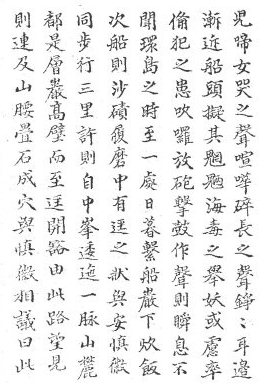 兒啼女哭之聲喧嘩碎長之聲錚〻耳邊
漸近船頭擬其魍魎海毒之舉妖或慮率
偷犯之患吹囉放砲擊鼓作聲則瞬息不
聞環島之時至一處日暮繫船巖下炊飯
次船則沙磧履磨中有之狀與安慎徽
同步行三里許則自中峯逶迤一脉山麓
都是層巖高壁而至開豁由此路望見
則連及山腰疊石成穴與慎徽相議曰此